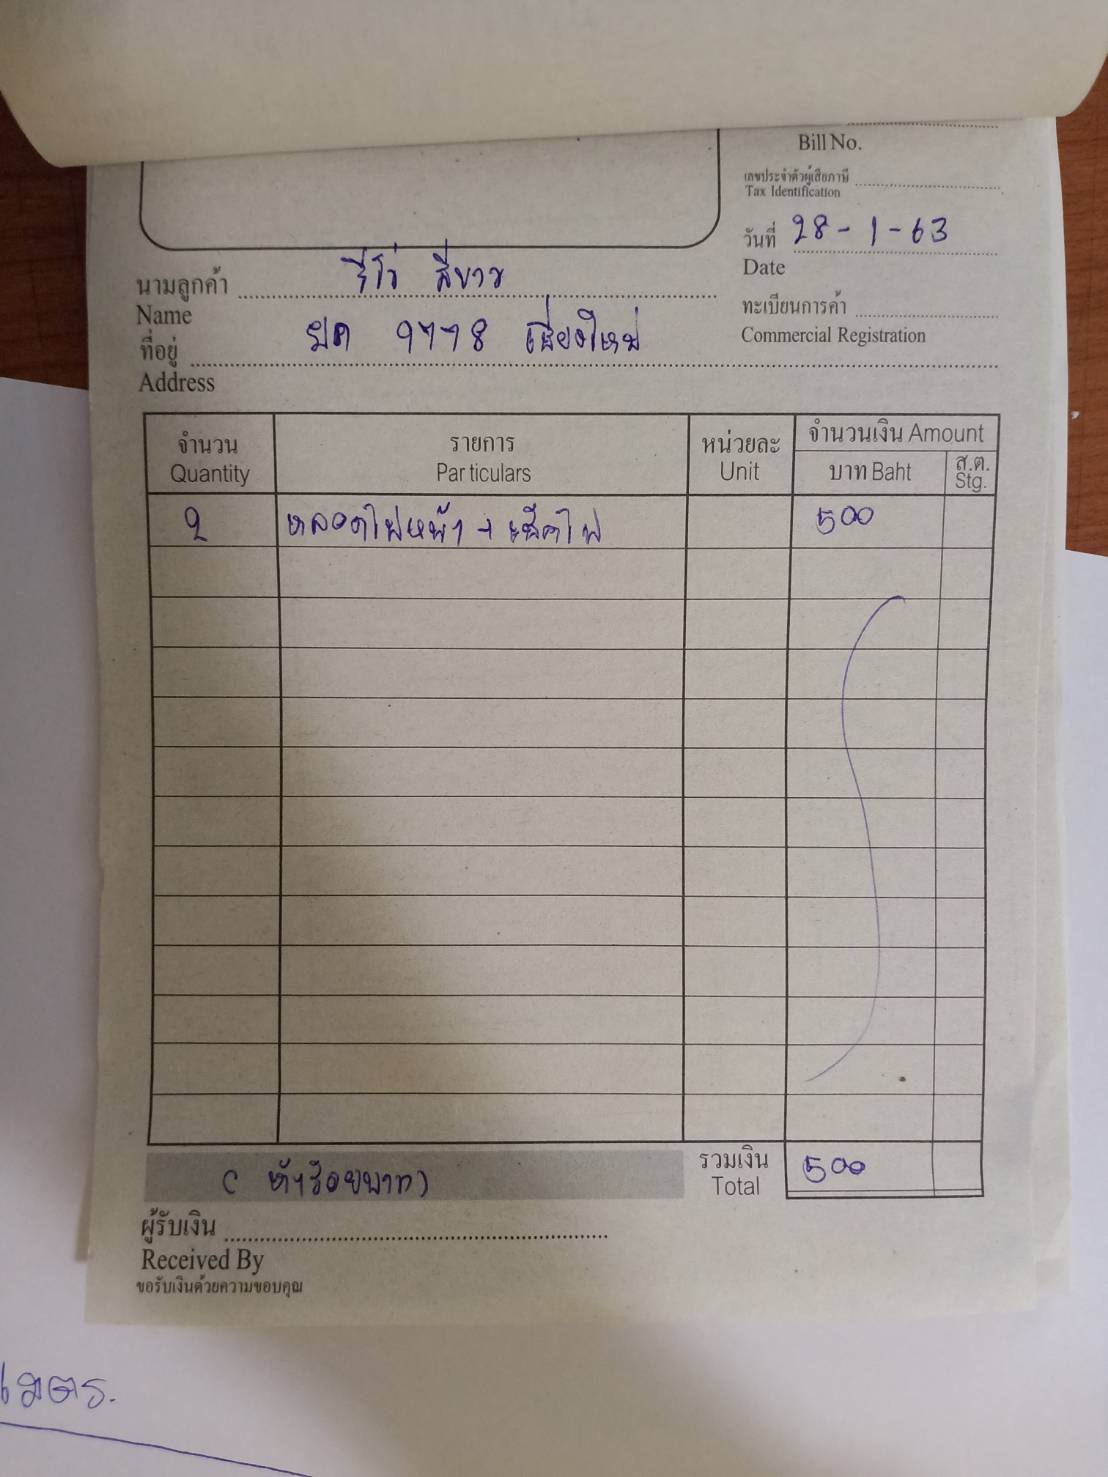 Bill No.
เลขประจำตัวผู้เสียภาษี
Tax Identification
วันที่ 28-1-63
Date
นามลูกค้า รีโว่ สีขาว
Name
ทะเบียนการค้า
Commercial Registration
ที่อยู่ เชียงใหม่
Address
จำนวน รายการ หน่วยละ จำนวนเงิน Amount
Quantity Particulars Unit บาท Baht ส.ต. Stg.
2 หลอดไฟหน้า + เช็คไฟ 500
(ห้าร้อยบาท) รวมเงิน 500
Total
ผู้รับเงิน
Received By
ขอรับเงินด้วยความขอบคุณ